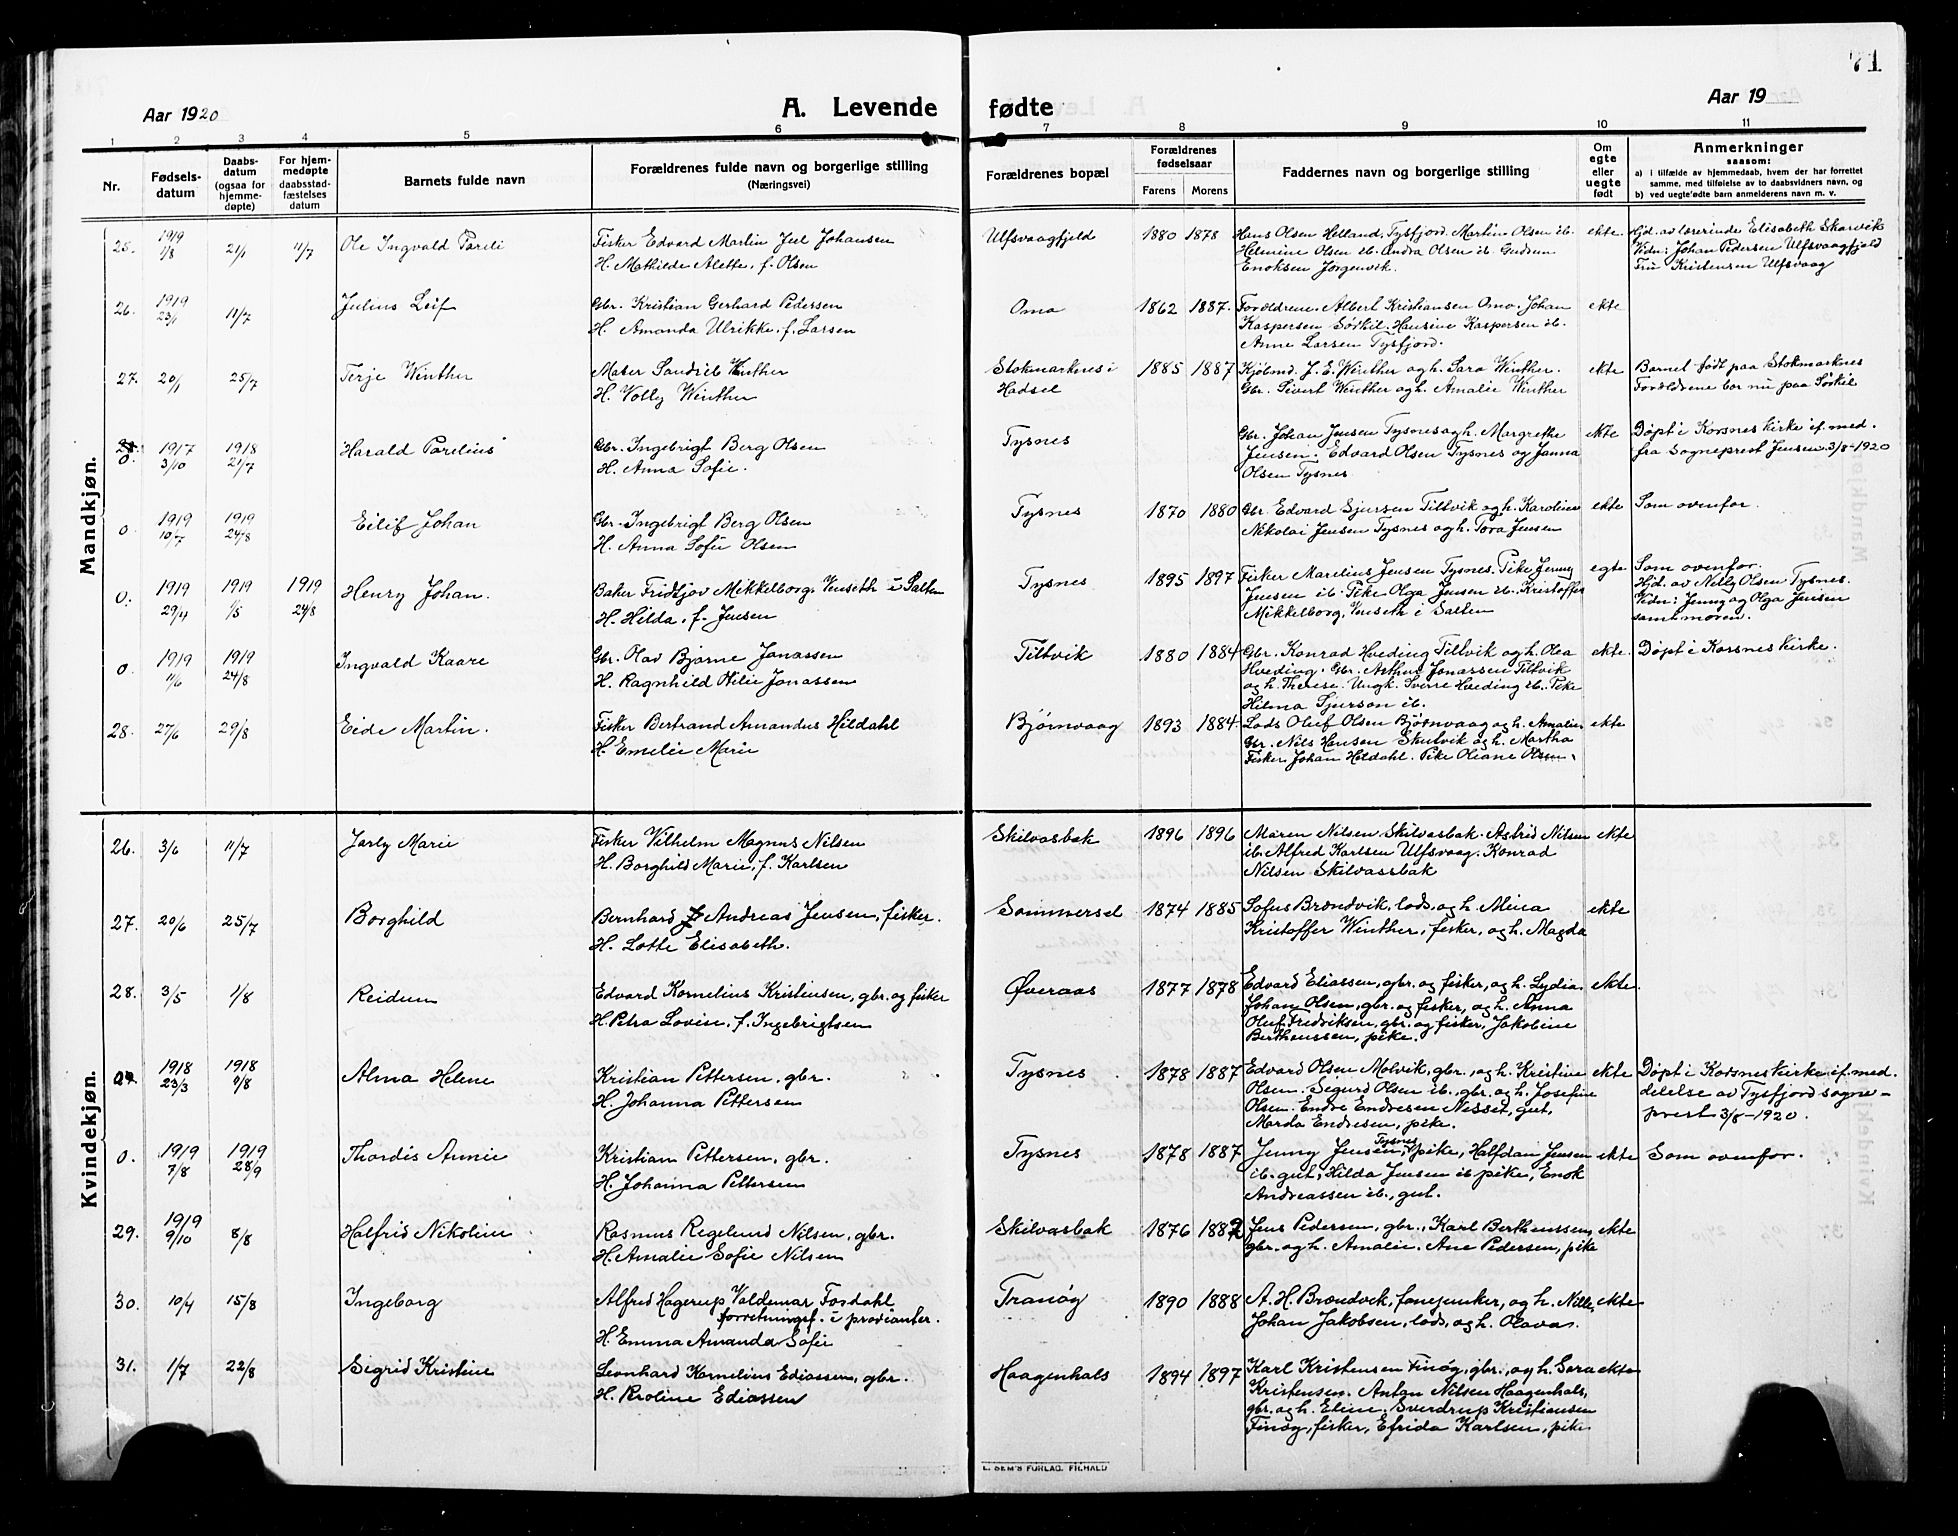 71
Aar 1920
A. Levende fødte
Aar 19
1 2 3 4 5 6 7 8 9 10 11
Nr.
Fødsels-
datum
Daabs-
datum
(ogsaa for
hjemme-
døpte)
For hjem-
medøpte
daabsstad-
fæstelses
datum
Barnets fulde navn
Forældrenes fulde navn og borgerlige stilling
(Næringsvei)
Forældrenes bopæl
Forældrenes
fødselsaar
Farens Morens
Faddernes navn og borgerlige stilling
Om
egte
eller
uegte
født
Anmerkninger
saasom:
a) i tilfælde av hjemmedaab, hvem der har forrettet
samme, med tilføielse av to daabsvidners navn, og
b) ved uegte fødte barn anmelderens navn m. v.
Mandkjøn.
25. 1919 1/8 21/1 11/7 Ole Ingvald Pareli
Fisker Edvard Martin Juel Johansen
H. Mathilde Alette, f. Olsen
Ulfsvaagfjeld 1880 1878
Hans Olsen Helland, Tysfjord. Martin Olsen ib.
Helmine Olsen ib. Andra Olsen ib. Gudrun
Enoksen Jørgenvik.
ekte.
Hjd. av lærerinde Elisabeth Skarvik
Vidn: Johan Pedersen Ulfsvaagfjeld
Fru Kristensen Ulfsvaag
26. 1919 23/1 11/7 Julius Leif
Gbr. Kristian Gerhard Pedersen
H. Amanda Ulrikke, f. Larsen
Omo 1862 1887.
Forældrene. Albert Kristiansen Omo. Johan
Kaspersen Sørkil. Hansine Kaspersen ib.
Anne Larsen Tysfjord.
ekte
27. 20/1 25/7 Terje Winther
Maler Winther
H. Volly Winther
Stokmarknes i
Hadsel
1885 1887
Kjøbmd. J. E. Winther og h. Sara Winther.
Gbr. Sivert Winther og h. Amalie Winther
ekte
Barnet født paa Stokmarknes
Forældrene bor nu paa Sørkil
0. 1917 3/10 1918 21/7 Harald Parelius
Gbr. Ingebrigt Berg Olsen
H. Anna Sofie.
Tysnes
Gbr. Johan Jensen Tysnes og h. Margrethe
Jensen. Edvard Olsen Tysnes og Janna
Olsen Tysnes
ekte
Døpt i Korsnes kirke if. med.
fra Sogneprest Jensen 3/8-1920
0. 1919 10/7 1919 24/8 Eilif Johan
Gbr. Ingebrigt Berg Olsen
H. Anna Sofie Olsen
Tysnes 1870 1880
Gbr. Edvard Sjursen Tiltvik og h. Karoline
Nikolai Jensen Tysnes og h. Tora Jensen
ekte
Som ovenfor.
0. 1919 29/4 1919 1/5 1919 24/8 Henry Johan.
Baker Fridtjov Mikkelborg, Venseth i Salten
H. Hilda, f. Jensen
Tysnes 1895 1897
Fisker Marelius Jensen Tysnes. Pike Jenny
Jensen ib. Pike Olga Jensen ib. Kristoffer
Mikkelborg, Venseth i Salten
egte
Som ovenfor.
Hjd. av Nelly Olsen Tysnes.
Vidn: Jenny og Olga Jensen
samt moren.
0. 1919 11/6 1919 24/8 Ingvald Kaare
Gbr. Olav Bjarne Jonassen
H. Ragnhild Otilie Jonassen
Tiltvik 1880 1884
Gbr. Konrad Hveding Tiltvik og h. Olea
Hveding. Gbr. Arthur Jonassen Tiltvik
og h. Therese. Ungk. Sverre Hveding ib. Pike
Hilma Sjursen ib.
ekte.
Døpt i Korsnes kirke.
28. 27/6 29/8 Eide Martin.
Fisker Bertrand Amandus Hildahl
H. Emelie Marie
Bjørnvaag 1893 1884.
Lods Oluf Olsen Bjørnvaag og h. Amalie.
Gbr. Nils Hansen Skutvik og h. Martha
Fisker Johan Hildahl. Pike Oleane Olsen.
ekte
Kvindekjøn.
26. 3/6 11/7 Jarly Marie
Fisker Vilhelm Magnus Nilsen
H. Borghild Marie, f. Karlsen
Skilvasbak 1896 1896
Maren Nilsen Skilvasbak. Astrid Nilsen
ib. Alfred Karlsen Ulfsvaag. Konrad
Nilsen Skilvassbak
ekte
27. 20/6 25/7 Borghild
Bernhard Andreas Jensen, fisker.
H. Lotte Elisabeth.
Sommersel 1874 1885
Sofus Brændvik, lods, og h. Meia
Kristoffer Winther, fisker, og h. Magda
ekte
28. 3/5 1/8 Reidun
Edvard Kornelius Kristensen, gbr. og fisker
H. Petra Lovise, f. Ingebrigtsen
Øveraas 1877 1878
Edvard Eliassen, gbr. og fisker, og h. Lydia.
Johan Olsen, gbr. og fisker, og h. Anna
Oluf Fredriksen, gbr. og fisker, Jakobine
Berthenssen, pike.
ekte.
1918 23/3 1918 9/8 Alma Helene
Kristian Pettersen, gbr.
H. Johanna Pettersen
Tysnes 1878 1887
Edvard Olsen Molvik, gbr., og h. Kristine
Olsen. Sigurd Olsen ib. gbr. og h. Josefine
Olsen. Endre Endresen Nesset, gut,
Marda Endresen, pike.
ekte
Døpt i Korsnes kirke if. med-
delelse av Tysfjord sogne-
prest 3/8-1920.
0. 1919 7/8 1919 28/9 Thordis Annie
Kristian Pettersen, gbr.
H. Johanna Pettersen
Tysnes 1878 1887
Jenny Jensen, Tysnes pike, Halfdan Jensen
ib. gut, Hilda Jensen ib pike, Enok
Andreassen ib., gut.
ekte
Som ovenfor.
29. 1919 9/10 8/8 Halfrid Nikoline
Rasmus Regelund Nilsen, gbr.
H. Amalie Sofie Nilsen
Skilvasbak 1876 1882
Jens Pedersen, gbr., Karl Berthenssen,
gbr. og h. Amalie. Ane Pedersen, pike
ekte
30. 10/4 15/8 Ingeborg
Alfred Hagerup Valdemar Fosdahl
forretningsf. i provianter.
H. Emma Amanda Sofie
Tranøy 1890 1888
A. H. Brændvik, fanejunker, og h. Nille,
Johan Jakobsen, lods, og h. Olava.
ekte
31. 1/7 22/8 Sigrid Kristine
Leonhard Kornelius Ediassen, gbr.
H. Roline Ediassen
Haagenhals 1894 1897
Karl Kristensen Finøy, gbr., og h. Sara
Kristensen. Anton Nilsen Haagenhals,
gbr. og h. Eline. Sverdrup Kristiansen
Finøy, fisker, Efrida Karlsen, pike
ekte
E. SEM'S FORLAG, FR.HALD